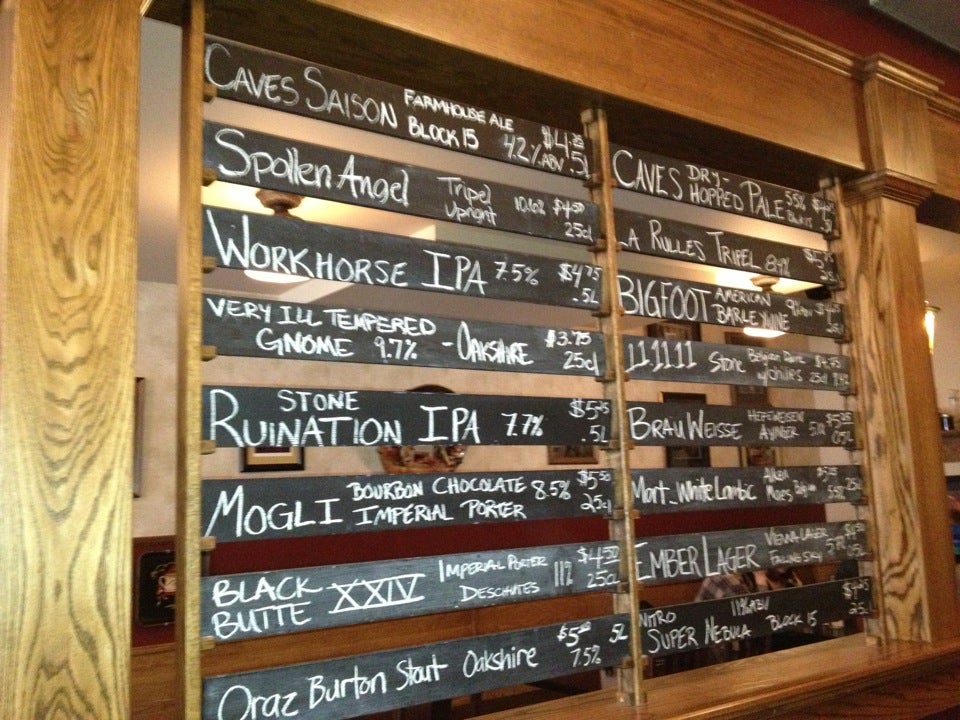 CAVES SAISON FARMHOUSE ALE
BLOCK 15 4.2% ABV $4.25 .5L
Spollen Angel Tripel
Upright 10.16% $4.50
25cl
WORKHORSE IPA 7.5% $4.75
.5L
VERY ILL TEMPERED
GNOME 9.7% - OAKSHIRE $3.75
25cl
STONE
RUINATION IPA 7.7% .5L
MOGLI BOURBON CHOCOLATE
IMPERIAL PORTER 8.5% $5.50
25cl
BLACK
BUTTE XXIV IMPERIAL PORTER
DESCHUTES 11% $4.50
25cl
Oraz Burton Stout Oakshire
7.5% .5L
CAVES DRY-
HOPPED PALE 5.5%
.5L
LA RULLES TRIPEL 8.4%
BIGFOOT AMERICAN
BARLEYWINE
11.11.11 Stone
w/chilies 25cl
BRAU WEISSE HEFEWEISEN
AYINGER
Mort White Lambic
EMBER LAGER VIENNA LAGER
FALLING SKY
NITRO 11% ABV
SUPER NEBULA BLOCK 15
25cl